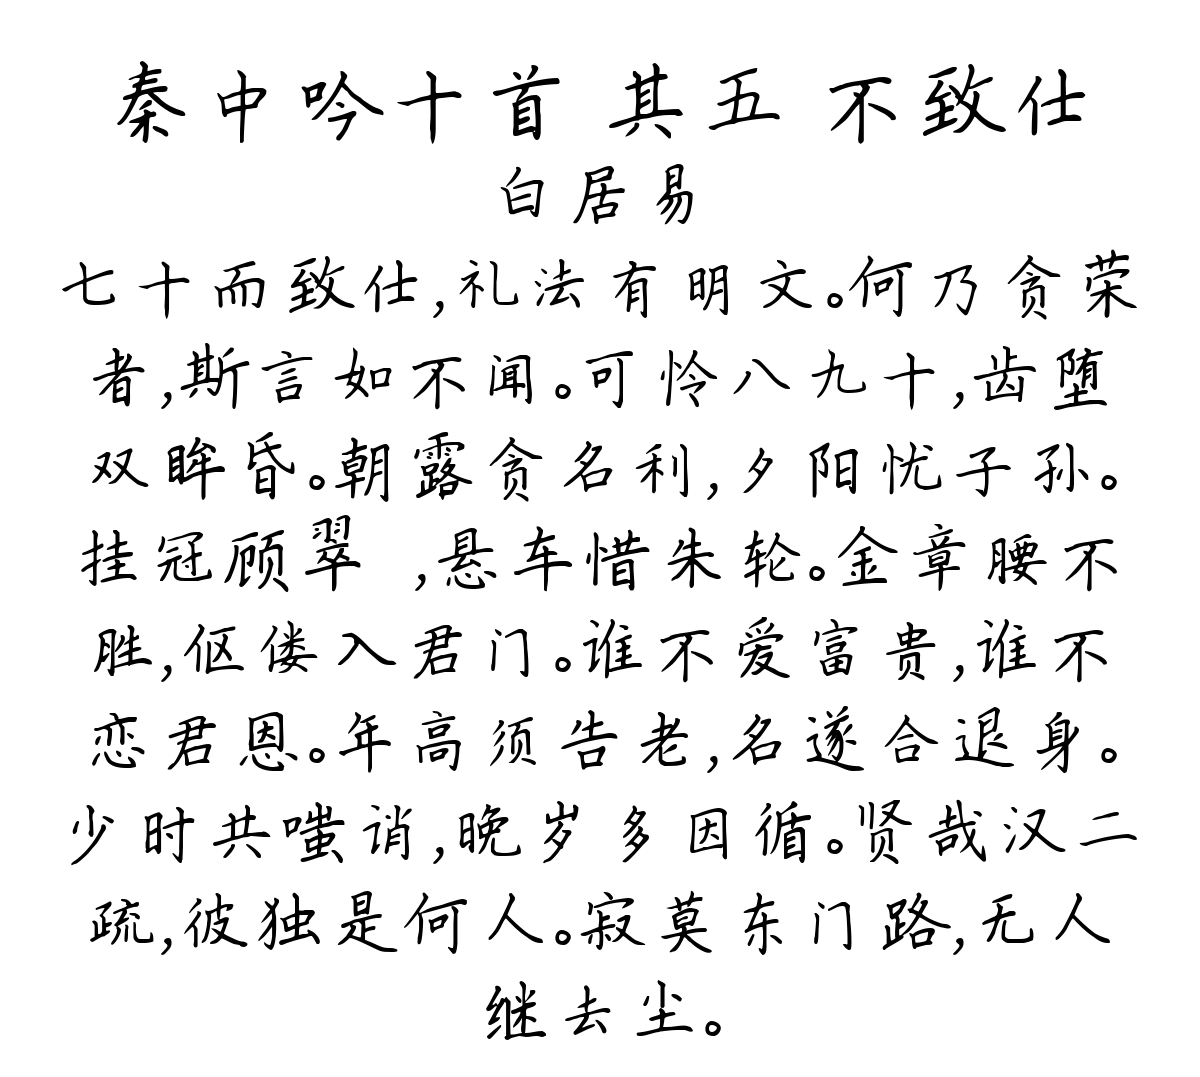 秦中吟十首 其五 不致仕
白居易
七十而致仕,礼法有明文。何乃贪荣
者,斯言如不闻。可怜八九十,齿堕
双眸昏。朝露贪名利,夕阳忧子孙。
挂冠顾翠 ,悬车惜朱轮。金章腰不
胜,伛偻入君门。谁不爱富贵,谁不
恋君恩。年高须告老,名遂合退身。
少时共嗤诮,晚岁多因循。贤哉汉二
疏,彼独是何人。寂莫东门路,无人
继去尘。